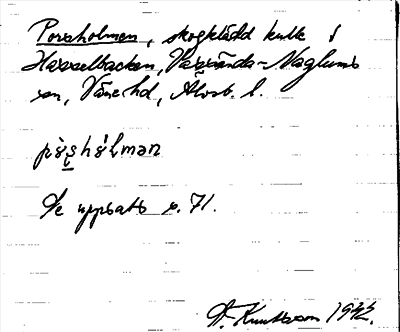 Porsholmen, skogklädd kulle i
Hasselbacken, Vassända-Naglums
sn, Väne hd, Älvsb. l.
Se uppsats s. 71.
Knutsson 1942.